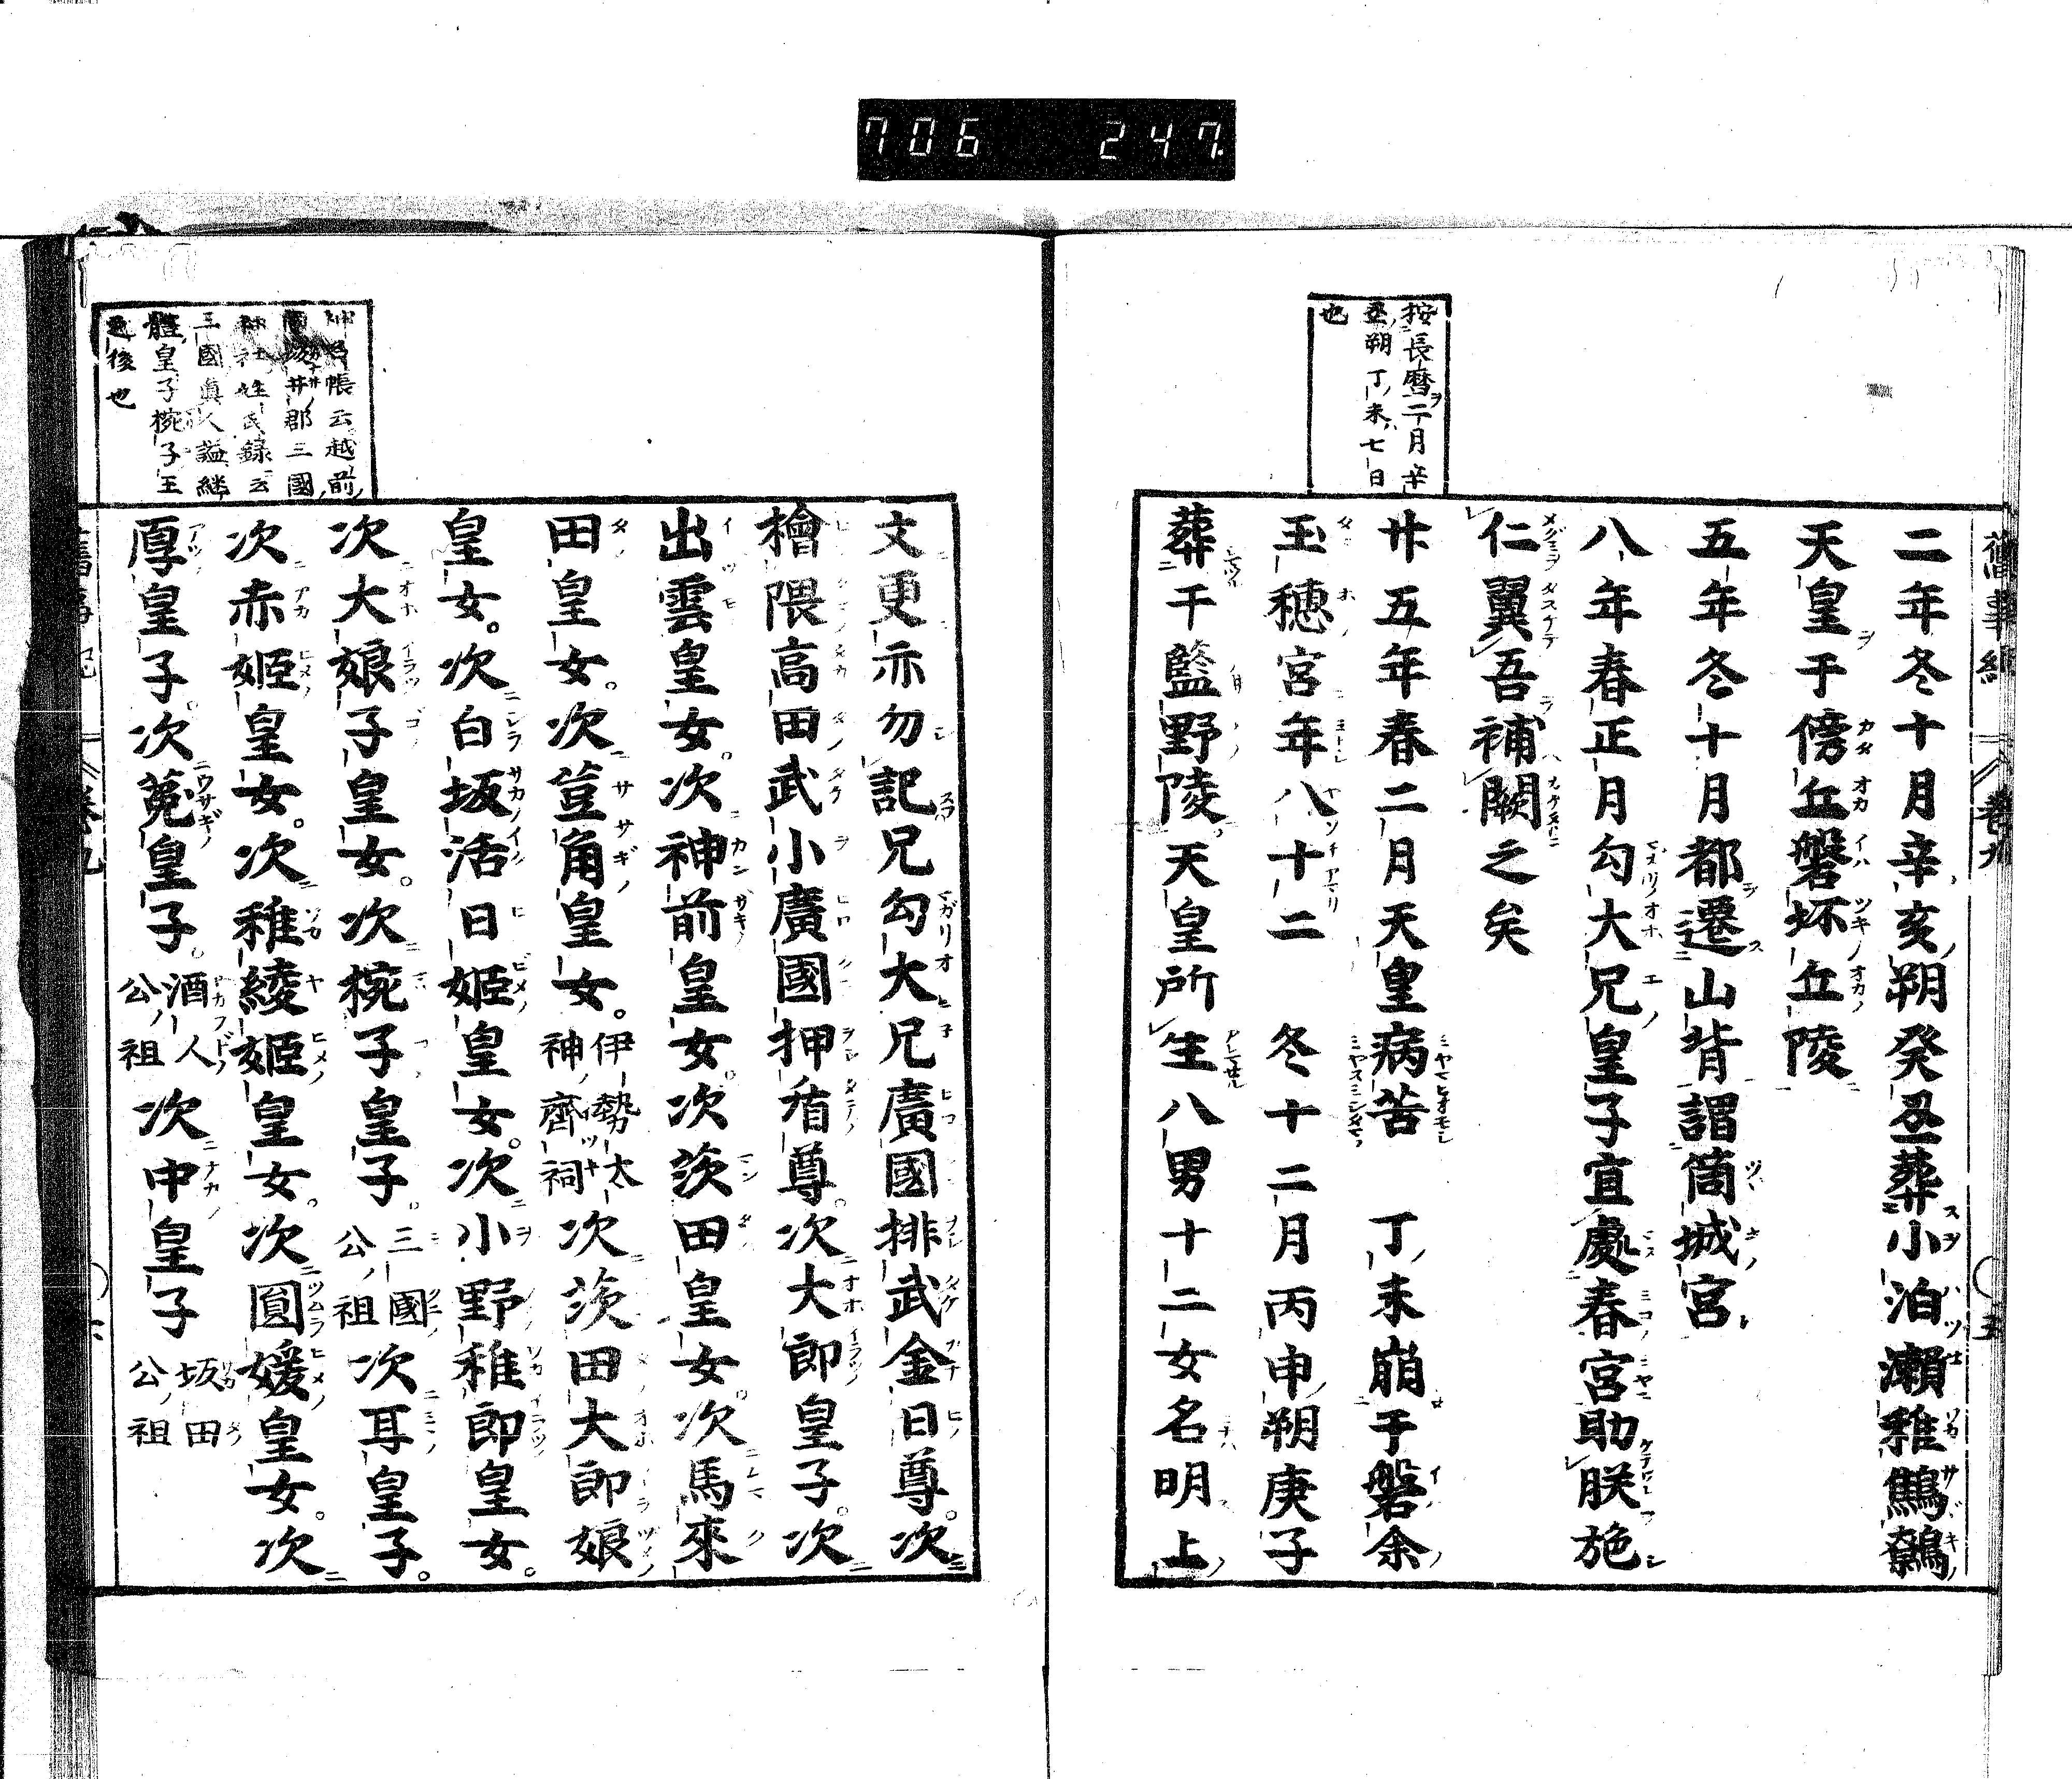 706 247
舊事紀 卷九 五
按長曆二月辛
丑朔丁未七日
也
二年冬十月辛亥朔癸丑葬小泊瀬稚鷦鷯
天皇于傍丘磐坏丘陵
五年冬十月都遷山背謂筒城宮
八年春正月勾大兄皇子宜處春宮助朕施
仁翼吾補闕之矣
廿五年春二月天皇病苦 丁未崩于磐余
玉穗宮年八十二 冬十二月丙申朔庚子
葬于籃野陵天皇所生八男十二女名明上
神名帳云越前
國坂井郡三國
神社姓氏錄云
三國眞人謚継
體皇子椀子王
之後也
文更示勿記兄勾大兄廣國排武金日尊。次
檜隈高田武小廣國押盾尊。次大郎皇子。次
出雲皇女。次神前皇女。次茨田皇女。次馬來
田皇女。次荳角皇女。伊勢太神齊祠次茨田大郎娘
皇女。次白坂活日姫皇女。次小野稚郎皇女。
次大娘子皇女。次椀子皇子。三國公祖次耳皇子。
次赤姫皇女。次稚綾姫皇女。次圓媛皇女。次
厚皇子。次菟皇子。酒人公祖次中皇子 坂田公祖